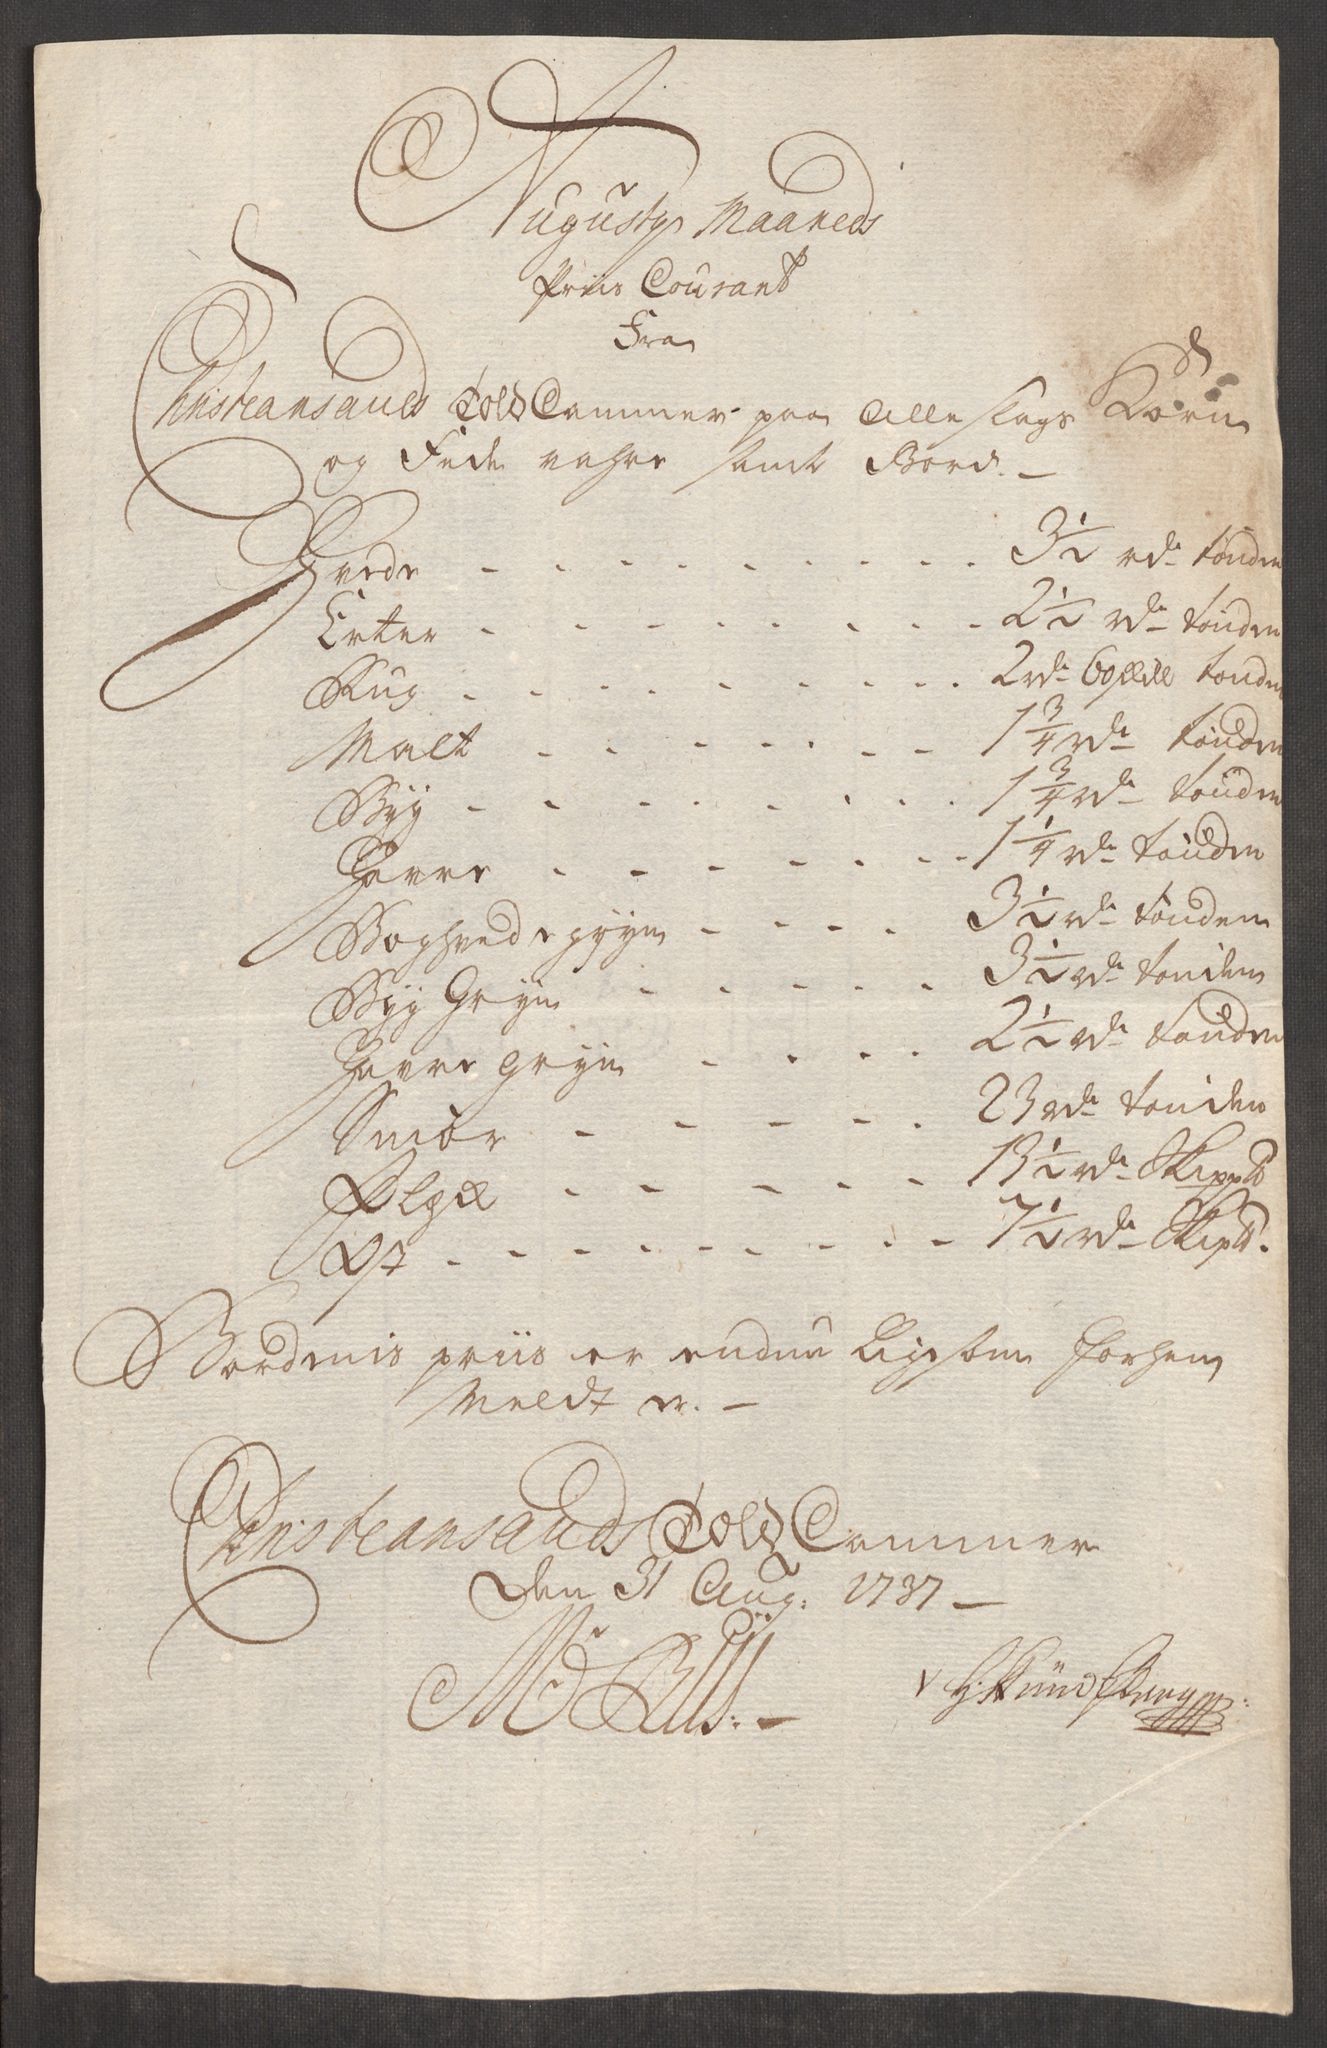 Augusty Maaneds
Priis Courant
Fra
Christiansands Told Cammer paa alle slags Korn
og Fede vahre samt Bord. —
Hvede - - - - - - - - - 3½ rdr tønden
Erter - - - - - - - - 2½ rdr tønden
Rug - - - - - - - - - 2 rdr tønden
Malt - - - - - - - 1¾ rdr tønden
Byg - - - - - - - - 1¾ rdr tønden
Havre - - - - - - - 1¼ rdr tønden
Boghvede gryn - - - - 3½ rdr tønden
Byg Gryn - - - - - 3½ rdr tønden
Havre gryn - - - - 2½ rdr tønden
Smør - - - - - 23 rdr tønden
Flesk - - - - - 13½ rdr Skippd
Ost - - - - - - - - 7½ rdr Skipd.
Bordenis priis er endnu ligesom forhen
meldt er. —
Christiansands Told Cammer
den 31 Aug: 1737 —